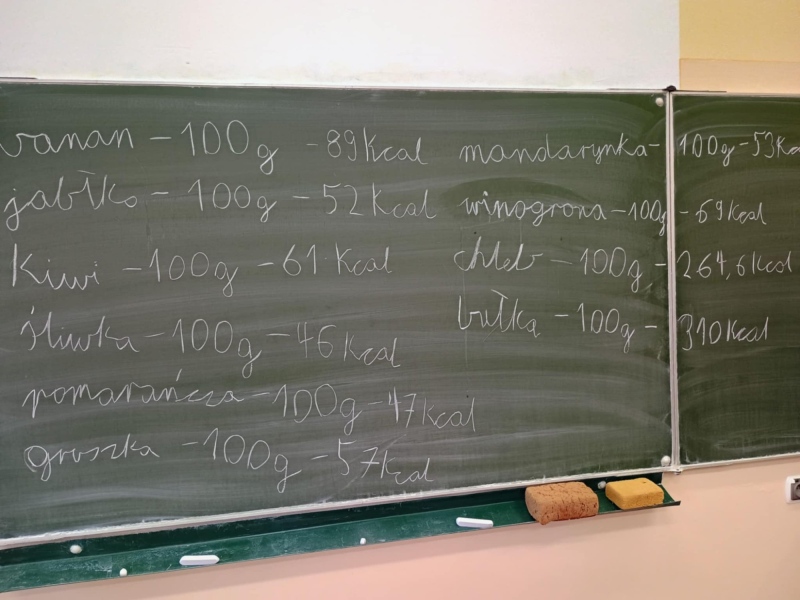 banan - 100g - 89 Kcal
jabłko - 100g - 52 Kcal
Kiwi - 100g - 61 Kcal
śliwka - 100g - 46 Kcal
pomarańcza - 100g - 47 Kcal
gruszka - 100g - 57 Kcal
mandarynka - 100g - 53 Kca
winogrona - 100g - 69 Kcal
chleb - 100g - 264,6 Kcal
bułka - 100g - 310 Kcal